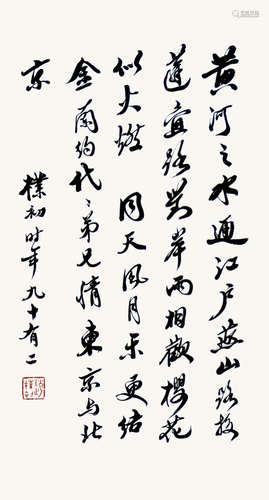 黄河之水通江户燕山路接
蓬壶路对岸两相歡樱花
似火燃 同天风月乐更结
金蘭约代〻弟兄情東京与北
京
樸初时年九十有二